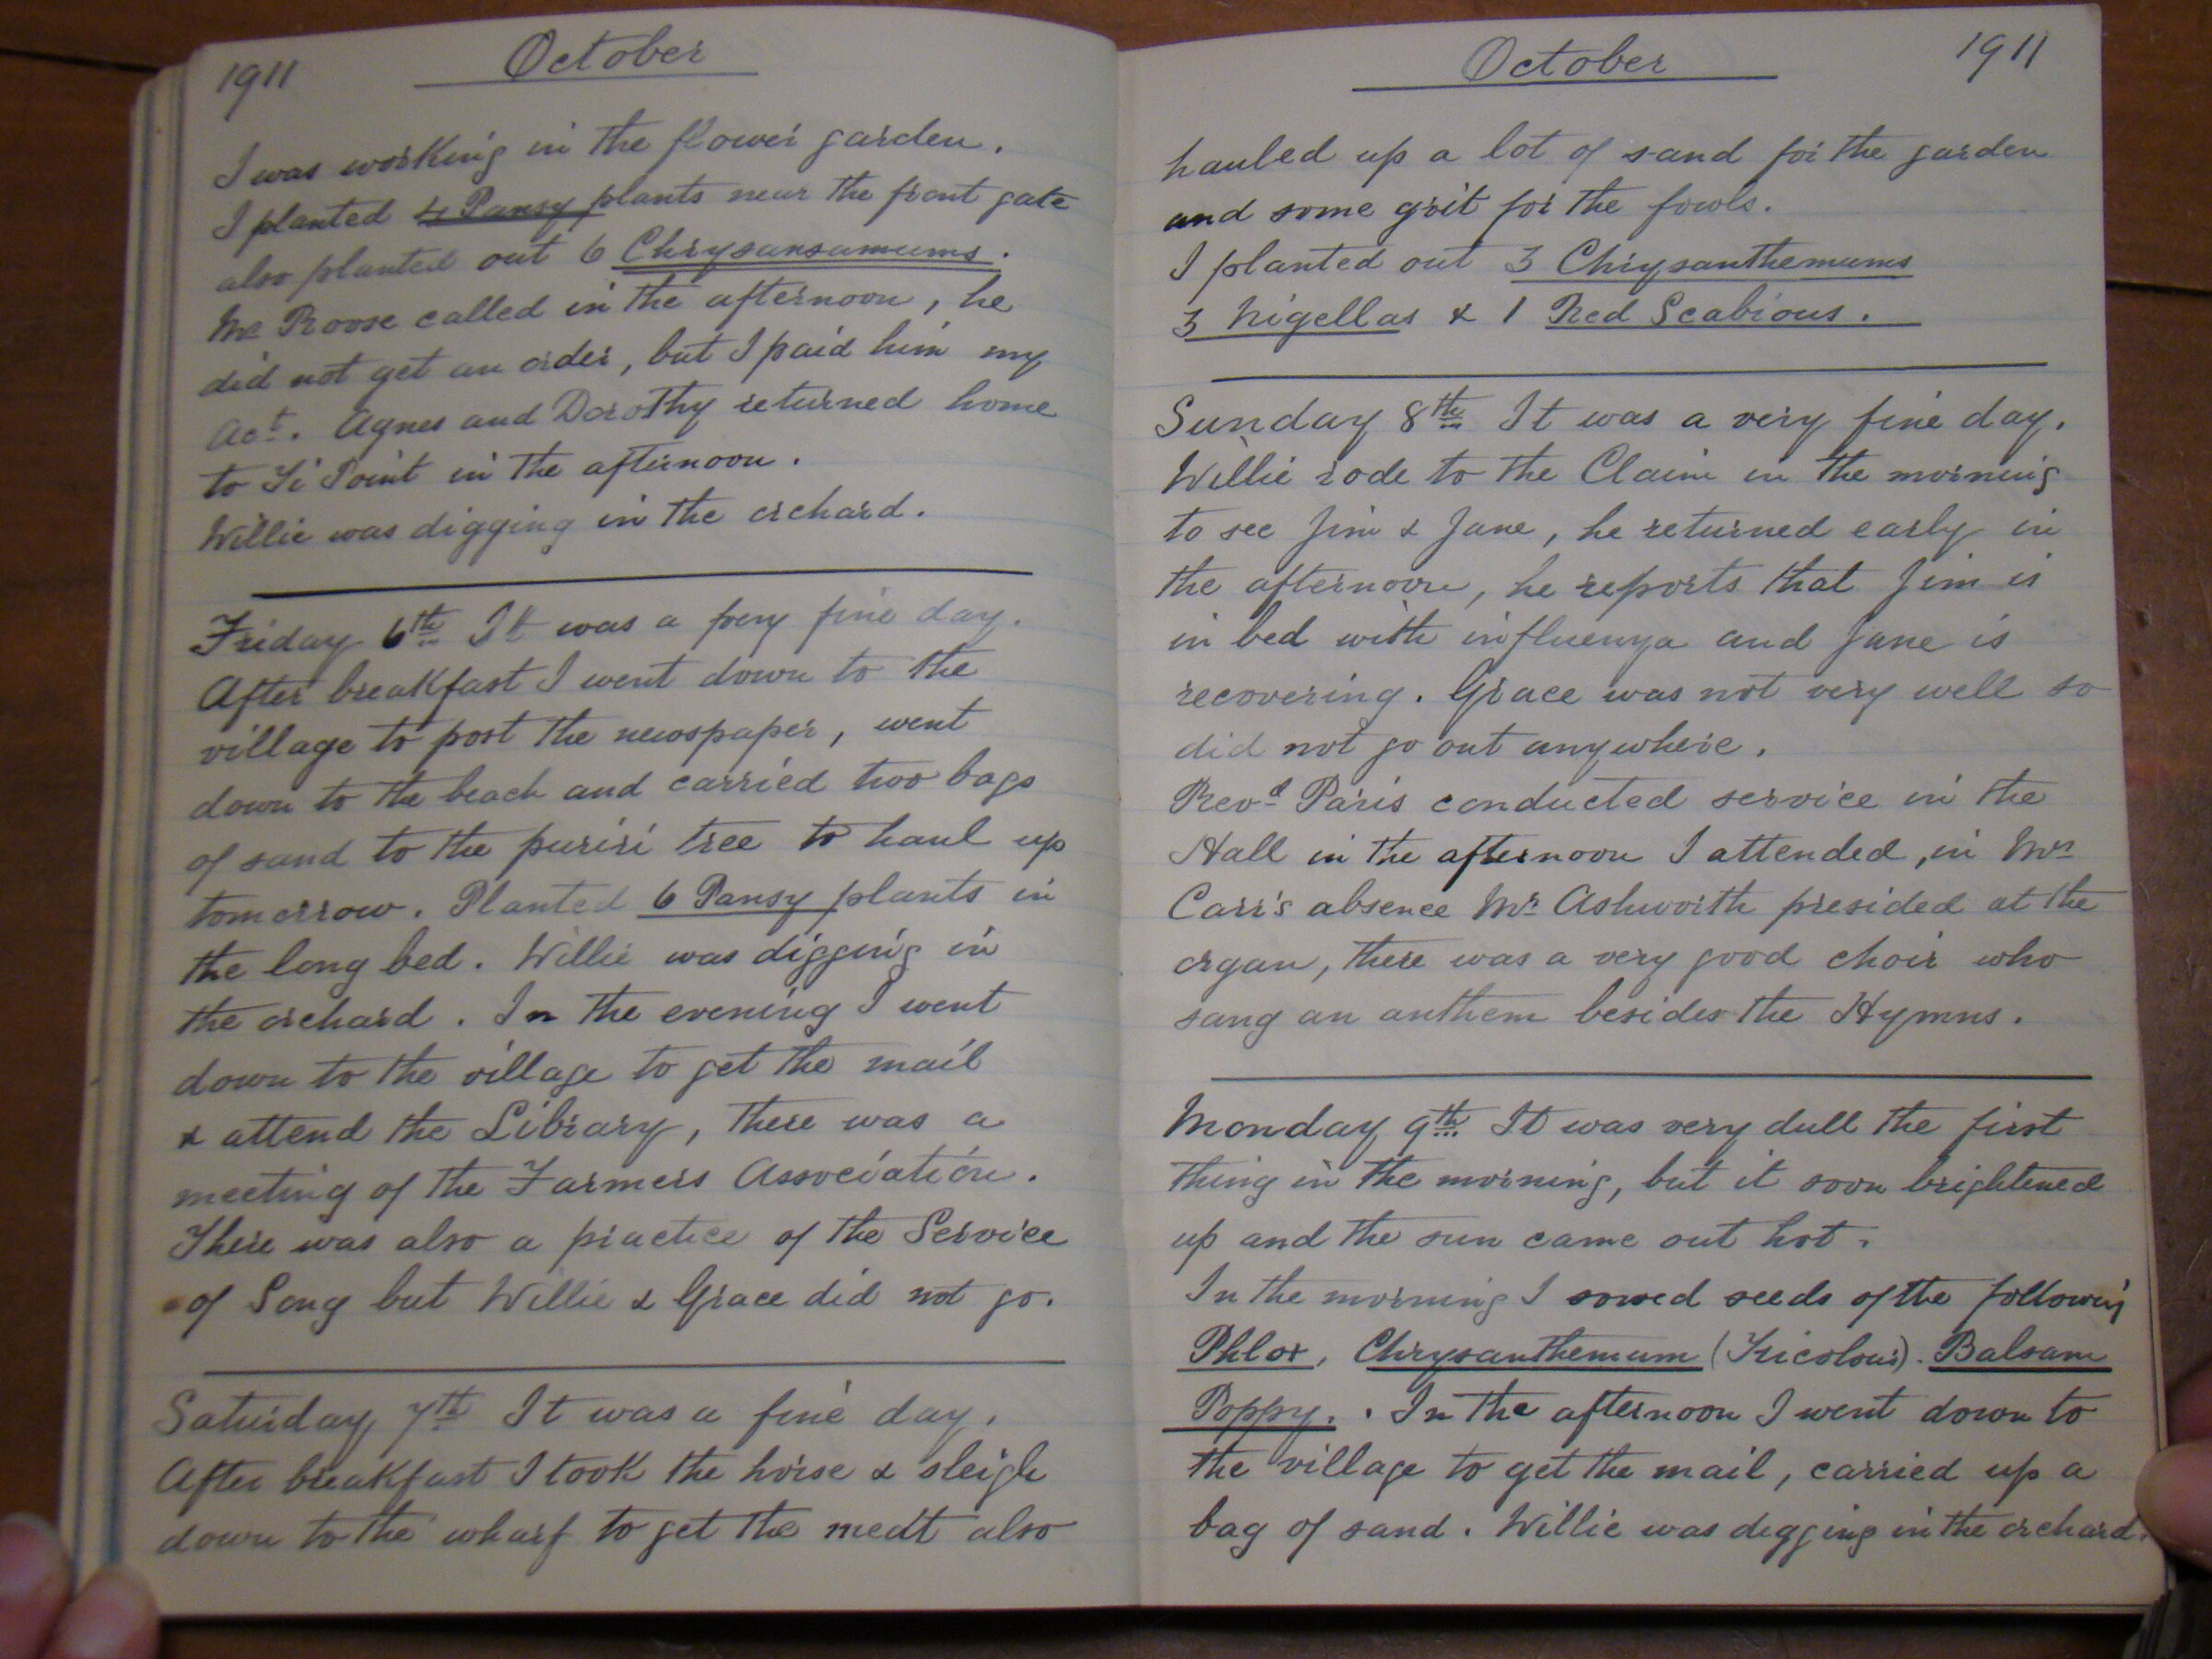 1911 October
I was working in the flower garden.
I planted 4 Pansy plants near the front gate
also planted out 6 Chrysansamums.
Mr Roose called in the afternoon, he
did not get an order, but I paid him my
Act. Agnes and Dorothy returned home
to Ti Point in the afternoon.
Willie was digging in the orchard.
Friday 6th It was a very fine day.
After breakfast I went down to the
village to post the newspaper, went
down to the beach and carried two bags
of sand to the puriri tree to haul up
tomorrow. Planted 6 Pansy plants in
the long bed. Willie was digging in
the orchard. In the evening I went
down to the village to get the mail
& attend the Library, there was a
meeting of the Farmers Association.
There was also a practice of the Service
of Song but Willie & Grace did not go.
Saturday 7th It was a fine day.
After breakfast I took the horse & sleigh
down to the wharf to get the meat also
October 1911
hauled up a lot of sand for the garden
and some grit for the fowls.
I planted out 3 Chrysanthemums
3 Nigellas & 1 Red Scabious.
Sunday 8th It was a very fine day.
Willie rode to the Claim in the morning
to see Jim & Jane, he returned early in
the afternoon, he reports that Jim is
in bed with influenza and Jane is
recovering. Grace was not very well so
did not go out anywhere.
Revd Paris conducted service in the
Hall in the afternoon I attended, in Mrs
Carr's absence Mr Ashworth presided at the
organ, there was a very good choir who
sang an anthem besides the Hymns.
Monday 9th It was very dull the first
thing in the morning, but it soon brightened
up and the sun came out hot.
In the morning I sowed seeds of the following
Phlox, Chrysanthemum (Tricolour). Balsam
Poppy. . In the afternoon I went down to
the village to get the mail, carried up a
bag of sand. Willie was digging in the orchard.